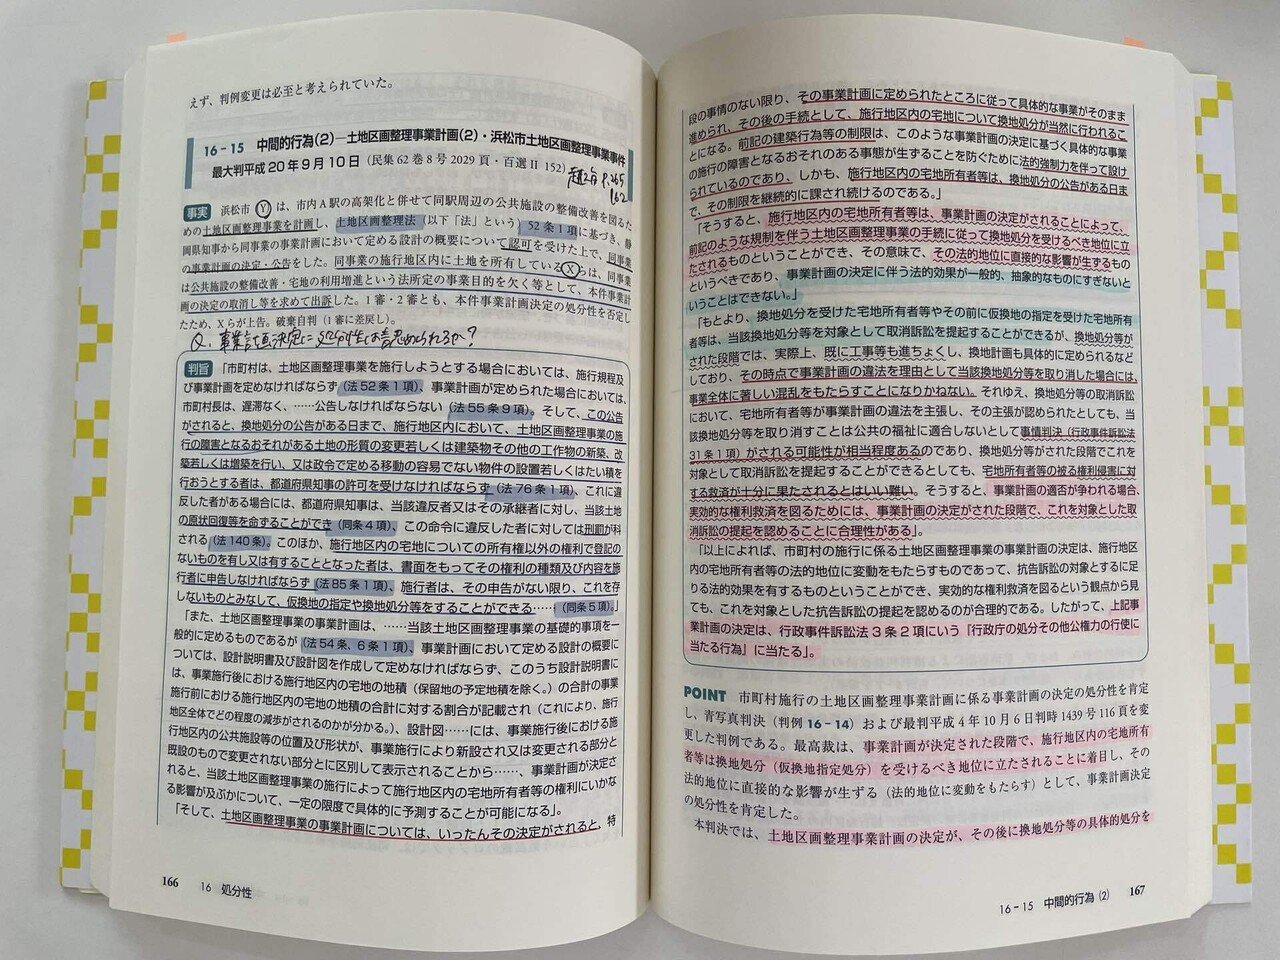 えず、判例変更は必至と考えられていた。
16-15 中間的行為(2)―土地区画整理事業計画(2)・浜松市土地区画整理事業事件
最大判平成20年9月10日(民集62巻8号2029頁・百選Ⅱ 152)
P.265
162
事実 浜松市Ⓨは、市内A駅の高架化と併せて同駅周辺の公共施設の整備改善を図るた
めの土地区画整理事業を計画し、土地区画整理法(以下「法」という)52条1項に基づき、静
岡県知事から同事業の事業計画において定める設計の概要について認可を受けた上で、同事業
の事業計画の決定・公告をした。同事業の施行地区内に土地を所有しているⓍらは、同事業
は公共施設の整備改善・宅地の利用増進という法所定の事業目的を欠く等として、本件事業計
画の決定の取消し等を求めて出訴した。1審・2審とも、本件事業計画決定の処分性を否定し
たため、Xらが上告。破棄自判(1審に差戻し)。
Q. 事業計画決定に処分性は認められるか?
判旨 「市町村は、土地区画整理事業を施行しようとする場合においては、施行規程及
び事業計画を定めなければならず(法52条1項)、事業計画が定められた場合においては、
市町村長は、遅滞なく、……公告しなければならない(法55条9項)。そして、この公告
がされると、換地処分の公告がある日まで、施行地区内において、土地区画整理事業の施
行の障害となるおそれがある土地の形質の変更若しくは建築物その他の工作物の新築、改
築若しくは増築を行い、又は政令で定める移動の容易でない物件の設置若しくはたい積を
行おうとする者は、都道府県知事の許可を受けなければならず(法76条1項)、これに違
反した者がある場合には、都道府県知事は、当該違反者又はその承継者に対し、当該土地
の原状回復等を命ずることができ(同条4項)、この命令に違反した者に対しては刑罰が科
される(法140条)。このほか、施行地区内の宅地についての所有権以外の権利で登記の
ないものを有し又は有することとなった者は、書面をもってその権利の種類及び内容を施
行者に申告しなければならず(法85条1項)、施行者は、その申告がない限り、これを存
しないものとみなして、仮換地の指定や換地処分等をすることができる……(同条5項)。」
「また、土地区画整理事業の事業計画は、……当該土地区画整理事業の基礎的事項を一
般的に定めるものであるが(法54条、6条1項)、事業計画において定める設計の概要に
ついては、設計説明書及び設計図を作成して定めなければならず、このうち設計説明書に
は、事業施行後における施行地区内の宅地の地積(保留地の予定地積を除く。)の合計の事業
施行前における施行地区内の宅地の地積の合計に対する割合が記載され(これにより、施行
地区全体でどの程度の減歩がされるのかが分かる。)、設計図……には、事業施行後における施
行地区内の公共施設等の位置及び形状が、事業施行により新設され又は変更される部分と
既設のもので変更されない部分とに区別して表示されることから……、事業計画が決定さ
れると、当該土地区画整理事業の施行によって施行地区内の宅地所有者等の権利にいかな
る影響が及ぶかについて、一定の限度で具体的に予測することが可能になる。」
「そして、土地区画整理事業の事業計画については、いったんその決定がされると、特
166 16 処分性
段の事情のない限り、その事業計画に定められたところに従って具体的な事業がそのまま
進められ、その後の手続として、施行地区内の宅地について換地処分が当然に行われるこ
とになる。前記の建築行為等の制限は、このような事業計画の決定に基づく具体的な事業
の施行の障害となるおそれのある事態が生ずることを防ぐために法的強制力を伴って設け
られているのであり、しかも、施行地区内の宅地所有者等は、換地処分の公告がある日ま
で、その制限を継続的に課され続けるのである。」
「そうすると、施行地区内の宅地所有者等は、事業計画の決定がされることによって、
前記のような規制を伴う土地区画整理事業の手続に従って換地処分を受けるべき地位に立
たされるものということができ、その意味で、その法的地位に直接的な影響が生ずるもの
というべきであり、事業計画の決定に伴う法的効果が一般的、抽象的なものにすぎないと
いうことはできない。」
「もとより、換地処分を受けた宅地所有者等やその前に仮換地の指定を受けた宅地所有
者等は、当該換地処分等を対象として取消訴訟を提起することができるが、換地処分等が
された段階では、実際上、既に工事等も進ちょくし、換地計画も具体的に定められるなど
しており、その時点で事業計画の違法を理由として当該換地処分等を取り消した場合には、
事業全体に著しい混乱をもたらすことになりかねない。それゆえ、換地処分等の取消訴訟
において、宅地所有者等が事業計画の違法を主張し、その主張が認められたとしても、当
該換地処分等を取り消すことは公共の福祉に適合しないとして事情判決(行政事件訴訟法
31条1項)がされる可能性が相当程度あるのであり、換地処分等がされた段階でこれを
対象として取消訴訟を提起することができるとしても、宅地所有者等の被る権利侵害に対
する救済が十分に果たされるとはいい難い。そうすると、事業計画の適否が争われる場合、
実効的な権利救済を図るためには、事業計画の決定がされた段階で、これを対象とした取
消訴訟の提起を認めることに合理性がある」。
「以上によれば、市町村の施行に係る土地区画整理事業の事業計画の決定は、施行地区
内の宅地所有者等の法的地位に変動をもたらすものであって、抗告訴訟の対象とするに足
りる法的効果を有するものということができ、実効的な権利救済を図るという観点から見
ても、これを対象とした抗告訴訟の提起を認めるのが合理的である。したがって、上記事
業計画の決定は、行政事件訴訟法3条2項にいう『行政庁の処分その他公権力の行使に
当たる行為』に当たる。」
POINT 市町村施行の土地区画整理事業計画に係る事業計画の決定の処分性を肯定
し、青写真判決(判例16-14)および最判平成4年10月6日判時1439号116頁を変
更した判例である。最高裁は、事業計画が決定された段階で、施行地区内の宅地所有
者等は換地処分(仮換地指定処分)を受けるべき地位に立たされることに着目し、その
法的地位に直接的な影響が生ずる(法的地位に変動をもたらす)として、事業計画決定
の処分性を肯定した。
本判決では、土地区画整理事業計画の決定が、その後に換地処分等の具体的処分を
16-15 中間的行為(2) 167